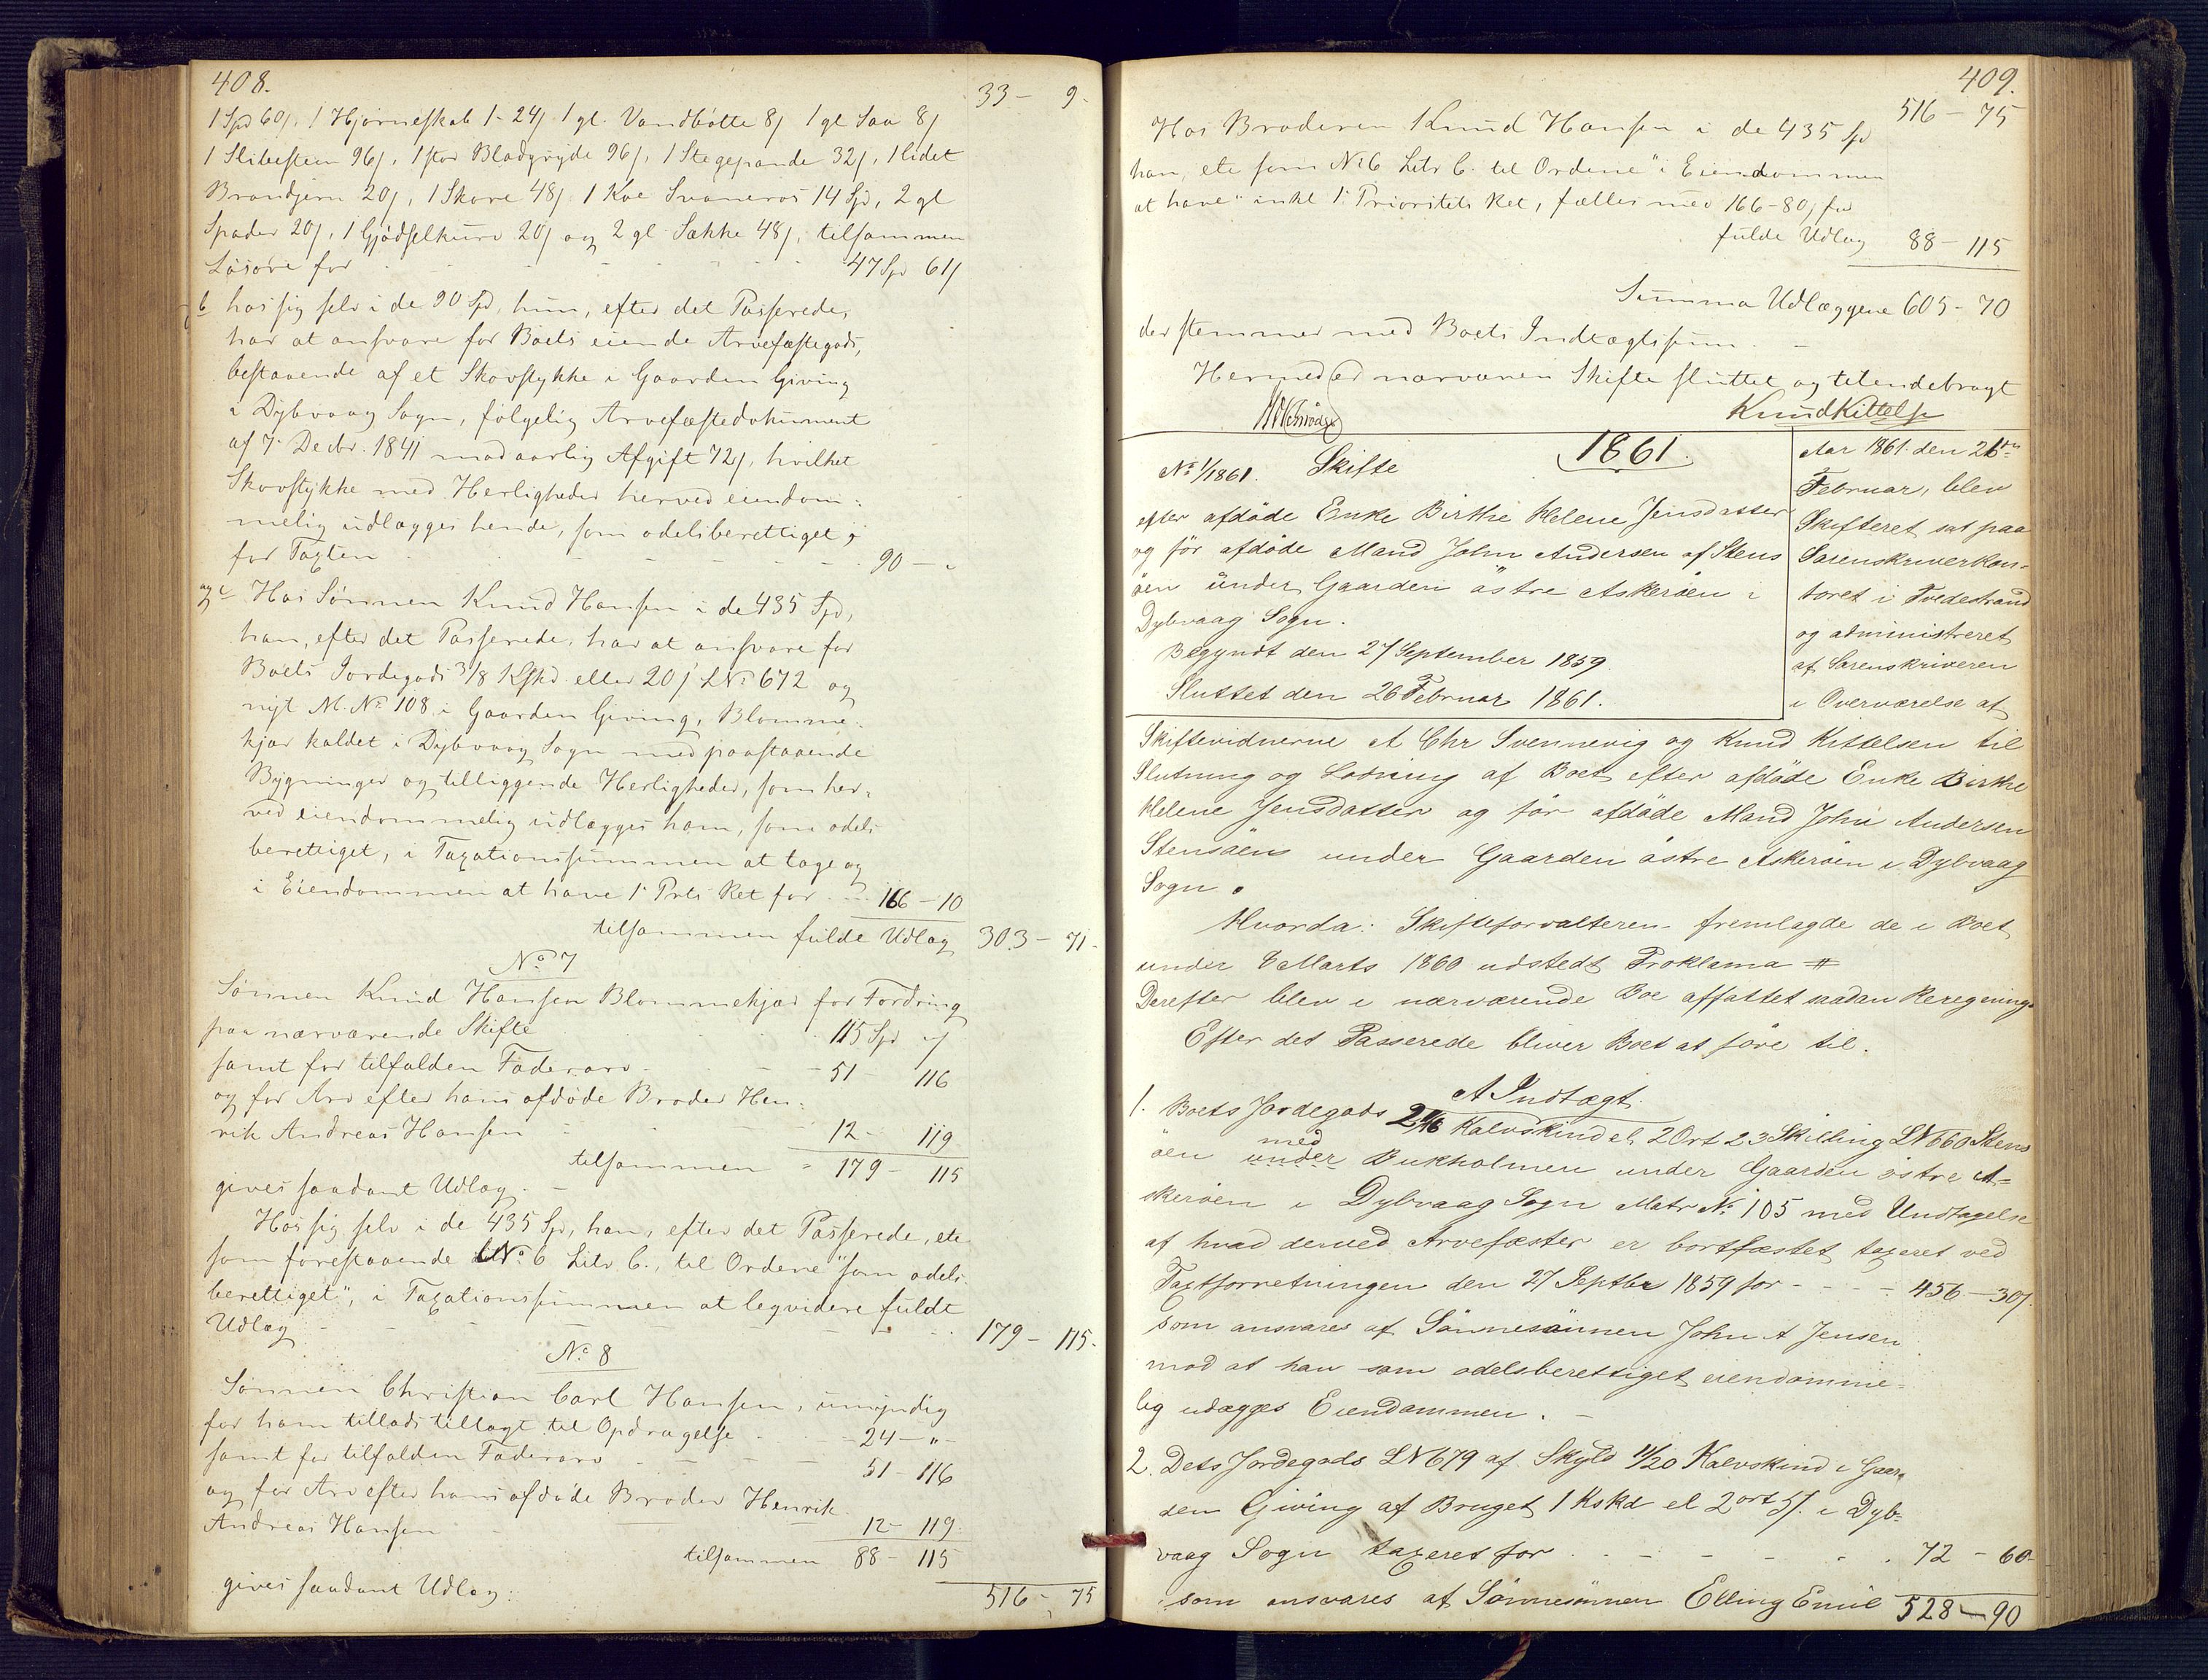 408.
33 - 9.
1 Spd 60 s. 1 Hjørneskab 1 - 24 s 1 gl. Vandbøtte 8 s 1 gl Saa 8 s
1 Slibesteen 96 s, 1 stor Bladgryde 96 s, 1 Stegepande 32 s, 1 lidet
Brandjern 20 s, 1 Skore 48 s 1 Koe Svaneros 14 Spd, 2 gl
Spader 20 s, 1 Gjødselkurv 20 s og 2 gl Sække 48 s, tilsammen
Løsøre for 47 Spd 61 s
b hos sig selv i de 90 Spd, hun, efter det Passerede,
har at ansvare for Boets eiende Arvefæstegods,
bestaaende af et Skovstykke i Gaarden Giving
i Dybvaag Sogn, følgelig Arvefæstedokument
af 7 Decbr. 1841 mod aarlig Afgift 72 s, hvilket
Skovstykke med Herligheder herved eiendom=
melig udlægges hende, som odelsberettiget,
for Taxten 90 - "
og c Hos Sønnen Knud Hansen i de 435 Spd,
han, efter det Passerede, har at ansvare for
Boets Jordegods 3/8 Kskd. eller 20 s LNo 672 og
nyt M. No 108 i Gaarden Giving, Blomme=
kjær kaldet i Dybvaag Sogn med paastaaende
Bygninger og tilliggende Herligheder, som her=
ved eiendommelig udlægges ham, som odels
berettiget, i Taxationssummen at tage og
i Eiendommen at have 1. Prts Ret for 166 - 10
tilsammen fulde Udlæg 303 - 71.
No 7
Sønnen Knud Hansen Blommekjær for Fordring
paa nærværende Skifte 115 Spd " s
samt for tilfalden Faderarv 51 - 116
og for Arv efter hans afdøde Broder Hen=
rik Andreas Hansen 12 - 119
tilsammen 179 - 115
gives saadant Udlæg.
Hos sig selv i de 435 Spd, han, efter det Passerede, etc
som forestaaende No 6 Litr C., til Ordene "som odels=
berettiget", i Taxationssummen at leqvidere fuldt
Udlæg 179 - 115.
No 8
Sønnen Christian Carl Hansen, umyndig
for ham tillods tillagt til Opdragelse 24 - " -
samt for tilfalden Faderarv 51 - 116
og for Arv efter hans afdøde Broder Henrik
Andreas Hansen 12 - 119
tilsammen 88 - 115
gives saadant Udlæg:
516 - 75
409.
516 - 75
Hos Broderen Knud Hansen i de 435 Spd
han, etc som No 6 Litr C. til Ordene "i Eiendommen
at have" inkl 1. Prioritets Ret, fælles med 166 - 80, for
fulde Udlæg 88 - 115
Summa Udlæggene 605 - 70
der stemmer med Boets Indtægtssum.
Hermed er nærværen Skifte sluttet og tilendebragt
Knud Kittelse
1861.
No 1/1861. Skifte
efter afdøde Enke Birthe Helene Jensdatter
og før afdøde Mand John Andersen af Stens
øen under Gaarden østre Askerøen i
Dybvaag Sogn.
Begyndt den 27 September 1859.
Sluttet den 26 Februar 1861.
Aar 1861 den 26de
Februar, blev
Skifteret sat paa
Sorenskriverkon=
toret i Tvedestrand
og administreret
af Sorenskriveren
i Overværelse af
Skiftevidnerne A Chr Svennevig og Knud Kittelsen til
Slutning og Lodning af Boet efter afdøde Enke Birthe
Helene Jensdatter og før afdøde Mand John Andersen
Stensøens under Gaarden østre Askerøen i Dybvaag
Sogn.
Hvorda: Skifteforvalteren fremlagde de i Boet
under 8 Marts 1860 udstedt Proklama #
Derefter blev i nærværende Boe affattet saadan Reregning
Efter det Passerede bliver Boet at føre til.
A Indtægt.
1. Boets Jordegods 2 1/16 Kalvskind el. 2 Ort 23 Skilling LN 660 Stens
øen under med Bukholmen under Gaarden østre A=
skerøen i Dybvaag Sogn Matr No 105 med Undtagelse
af hvad derved Arvefæster er bortfæstet taxeret ved
Taxtforretningen den 27 Septbr 1859 for 456 - 30 s.
som ansvares af Sønnesønnen John A Jensen
mod at han som odelsberettiget eiendomme=
lig udægges Eiendammen.
2. Dets Jordegods LN 679 af Skyld 11/20 Kalvskind i Gaar,
den Giving af Bruget 1 Kskd el 2 ort 5 s. i Dyb=
vaag Sogn taxeret for 72 - 60
som ansvares af Sønnesønnen Elling Emil 528 - 90